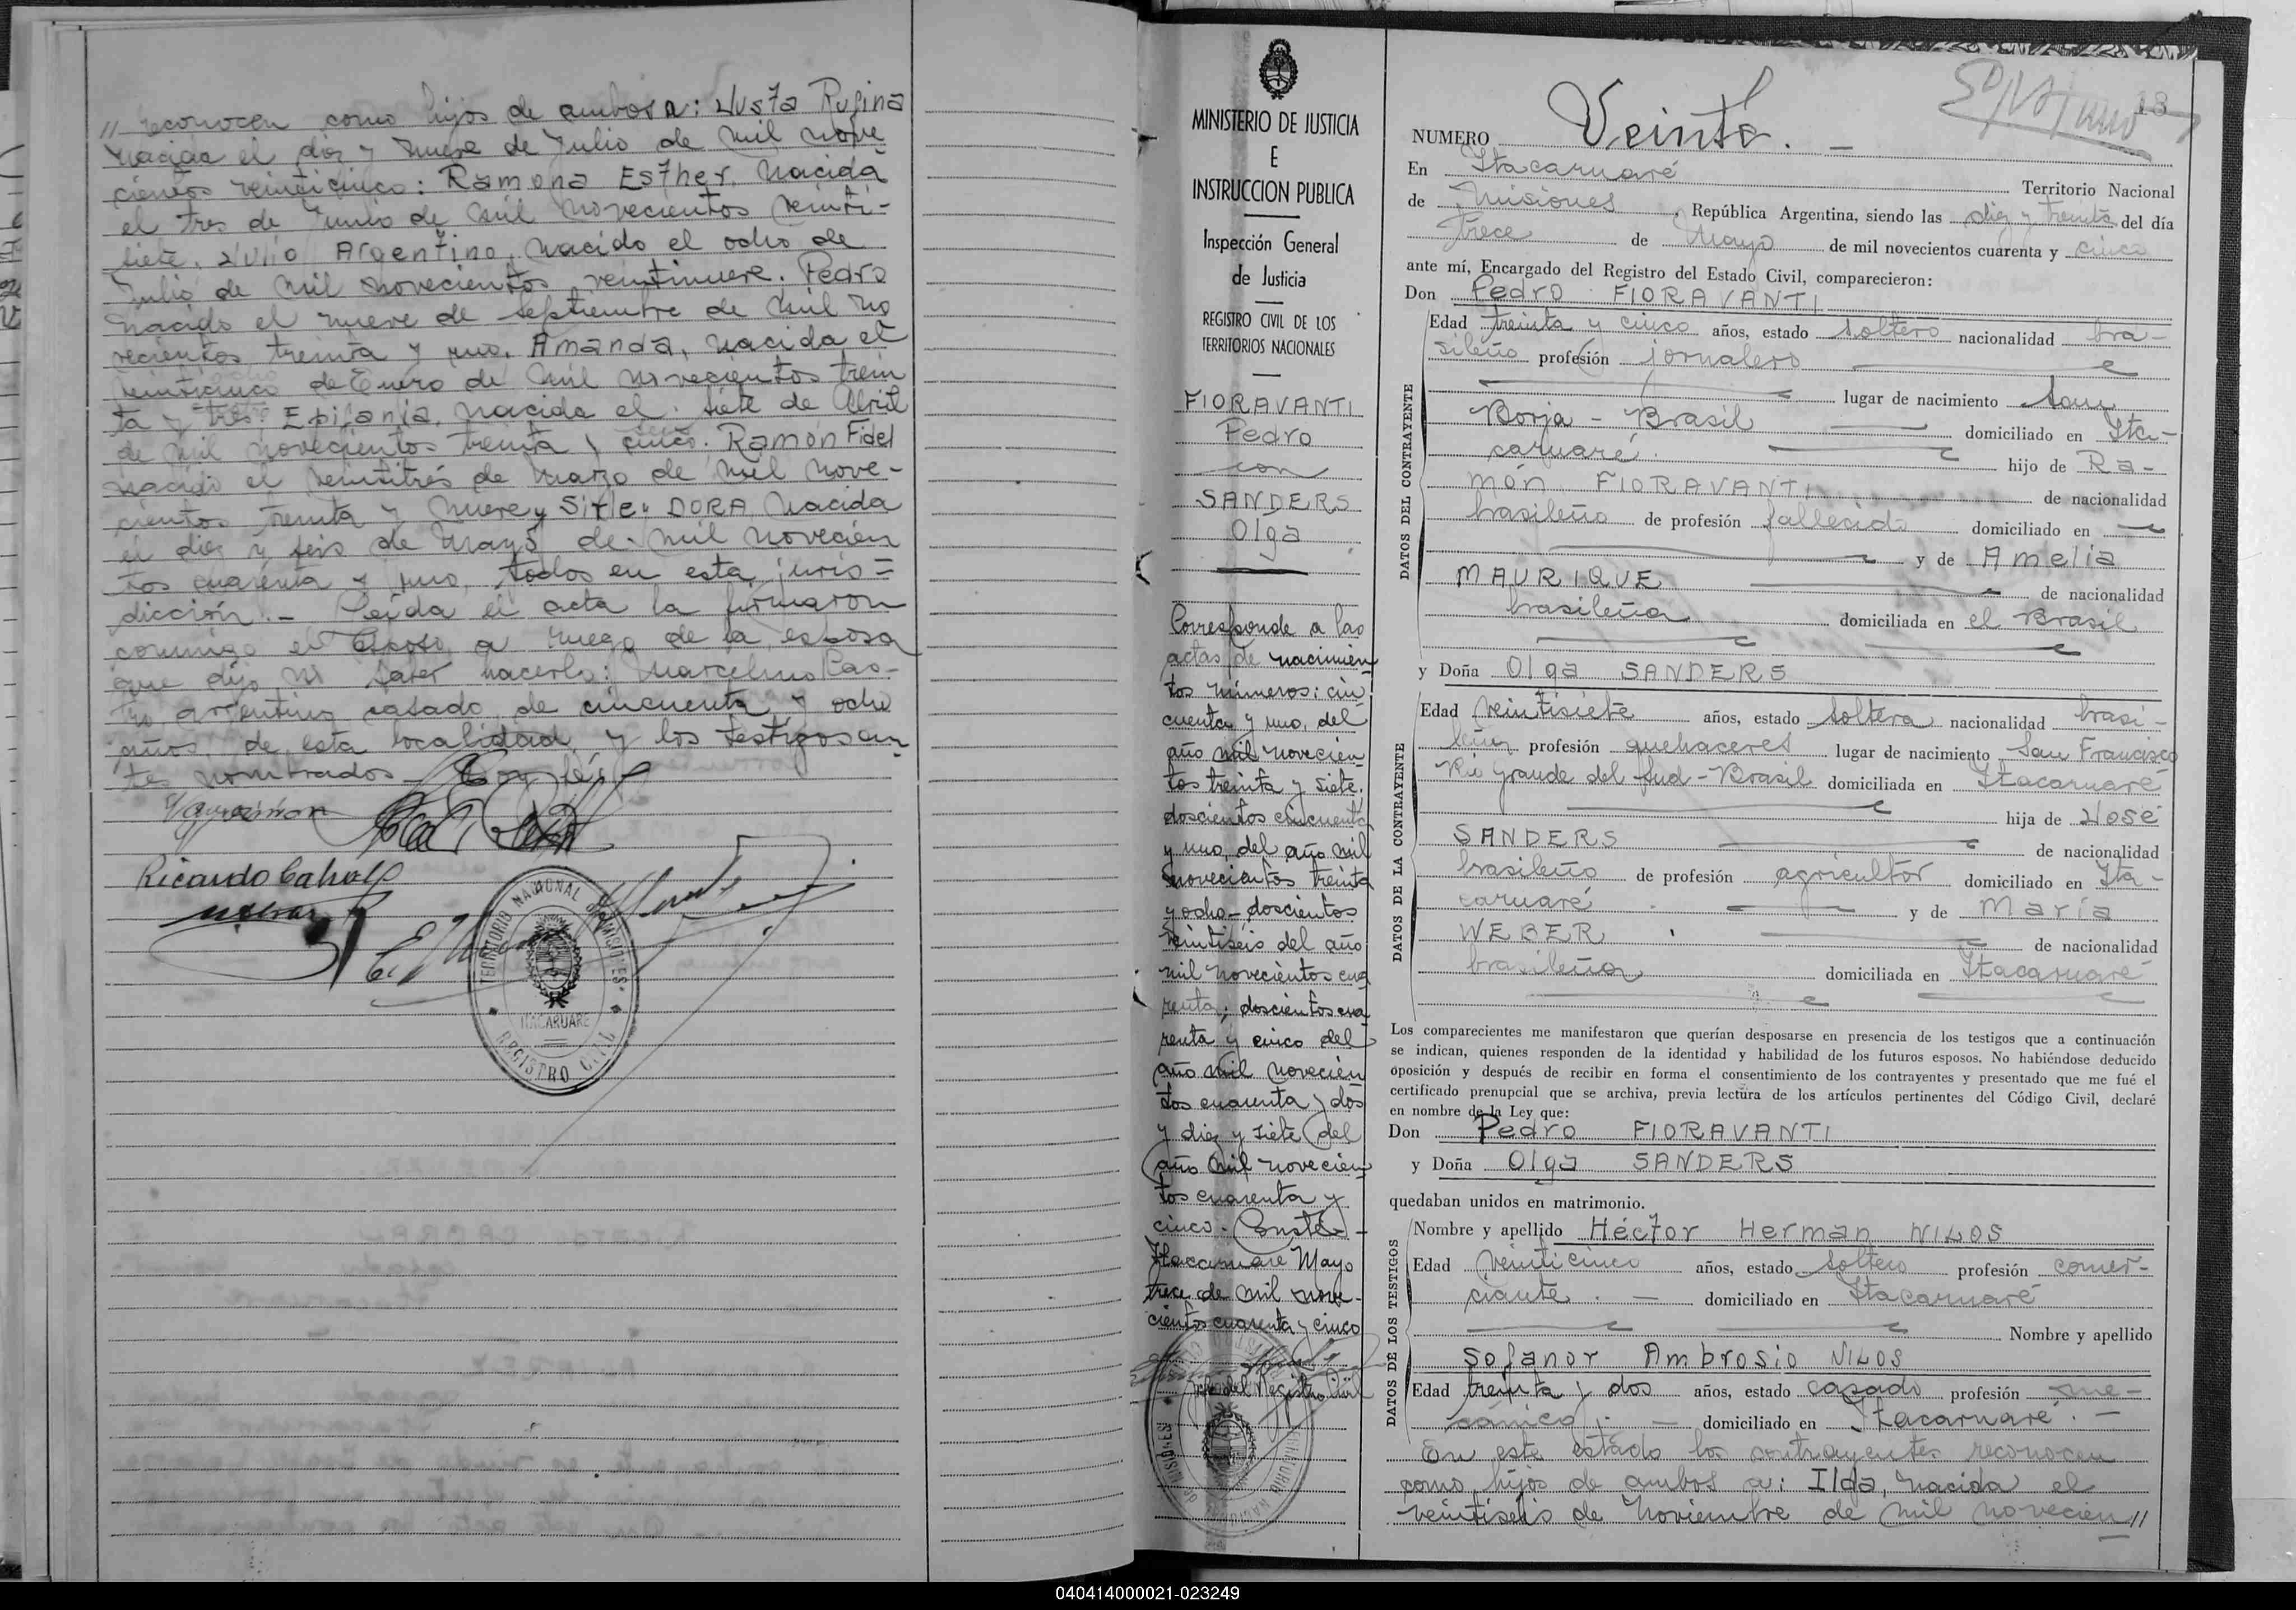 // reconocen como hijos de ambos a: Justa Rufina
nacida el diez y nueve de Julio de mil nove
cientos veinticinco: Ramona Esther, nacida
el tres de Junio de mil novecientos veinti-
siete, Julio Argentino, nacido el ocho de
Julio de mil novecientos veintinueve. Pedro
nacido el nueve de septiembre de mil no
vecientos treinta y uno. Amanda, nacida el
veinticinco de Enero de mil novecientos trein
ta y tres. Epifania, nacida el siete de Abril
de mil novecientos treinta y cinco. Ramón Fidel
nacido el veintitrés de Marzo de mil nove-
cientos treinta y nueve y DORA nacida
el diez y seis de Mayo de mil novecien
tos cuarenta y uno, todos en esta juris=
dicción.- Leída el acta la firmaron
conmigo el esposo, a ruego de la esposa
que dijo no saber hacerlo: Marcelino Cas-
tro, argentino, casado, de cincuenta y ocho
años, de esta localidad, y los testigos an
tes nombrados.-
Ricardo Cabral
TERRITORIO NACIONAL DE MISIONES
ITACARUARE
REGISTRO CIVIL
MINISTERIO DE JUSTICIA
E
INSTRUCCION PUBLICA
Inspección General
de Justicia
REGISTRO CIVIL DE LOS
TERRITORIOS NACIONALES
FIORAVANTI
Pedro
con
SANDERS
Olga
Corresponde a las
actas de nacimien
tos números: cin
cuenta y uno, del
año mil novecien
tos treinta y siete,
doscientos cincuenta
y uno, del año mil
novecientos treinta
y ocho - doscientos
veintiséis del año
mil novecientos cua
renta; doscientos cua
renta y cinco del
año mil novecien
tos cuarenta y dos
y diez y siete del
año mil novecien
tos cuarenta y
cinco. Conste-
Itacaruaré Mayo
trece de mil nove-
cientos cuarenta y cinco
Jefe del Registro Civil
18
NUMERO Veinte. -
En Itacaruaré Territorio Nacional
de Misiones, República Argentina, siendo las diez y treinta del día
trece de Mayo de mil novecientos cuarenta y cinco
ante mí, Encargado del Registro del Estado Civil, comparecieron:
Don Pedro FIORAVANTI
DATOS DEL CONTRAYENTE
Edad treinta y cinco años, estado soltero nacionalidad bra-
sileño profesión jornalero
lugar de nacimiento San
Borja - Brasil domiciliado en Ita-
caruaré. hijo de Ra-
món FIORAVANTI de nacionalidad
brasileño de profesión fallecido domiciliado en -
y de Amelia
MAURIQUE de nacionalidad
brasileña domiciliada en el Brasil
y Doña Olga SANDERS
DATOS DE LA CONTRAYENTE
Edad veintisiete años, estado soltera nacionalidad brasi-
leña profesión quehaceres lugar de nacimiento San Francisco
Río Grande del Sud - Brasil domiciliada en Itacaruaré
hija de José
SANDERS de nacionalidad
brasileño de profesión agricultor domiciliado en Ita-
caruaré y de María
WEBER de nacionalidad
brasileña domiciliada en Itacaruaré
Los comparecientes me manifestaron que querían desposarse en presencia de los testigos que a continuación
se indican, quienes responden de la identidad y habilidad de los futuros esposos. No habiéndose deducido
oposición y después de recibir en forma el consentimiento de los contrayentes y presentado que me fué el
certificado prenupcial que se archiva, previa lectura de los artículos pertinentes del Código Civil, declaré
en nombre de la Ley que:
Don Pedro FIORAVANTI
y Doña Olga SANDERS
quedaban unidos en matrimonio.
DATOS DE LOS TESTIGOS
Nombre y apellido Héctor Herman NILOS
Edad veinticinco años, estado soltero profesión comer-
ciante. - domiciliado en Itacaruaré
Nombre y apellido
Sofanor Ambrosio NILOS
Edad treinta y dos años, estado casado profesión me-
cánico. - domiciliado en Itacaruaré. -
En este estado los contrayentes reconocen
como hijos de ambos a: Ilda, nacida el
veintiséis de Noviembre de mil novecien//
040414000021-023249